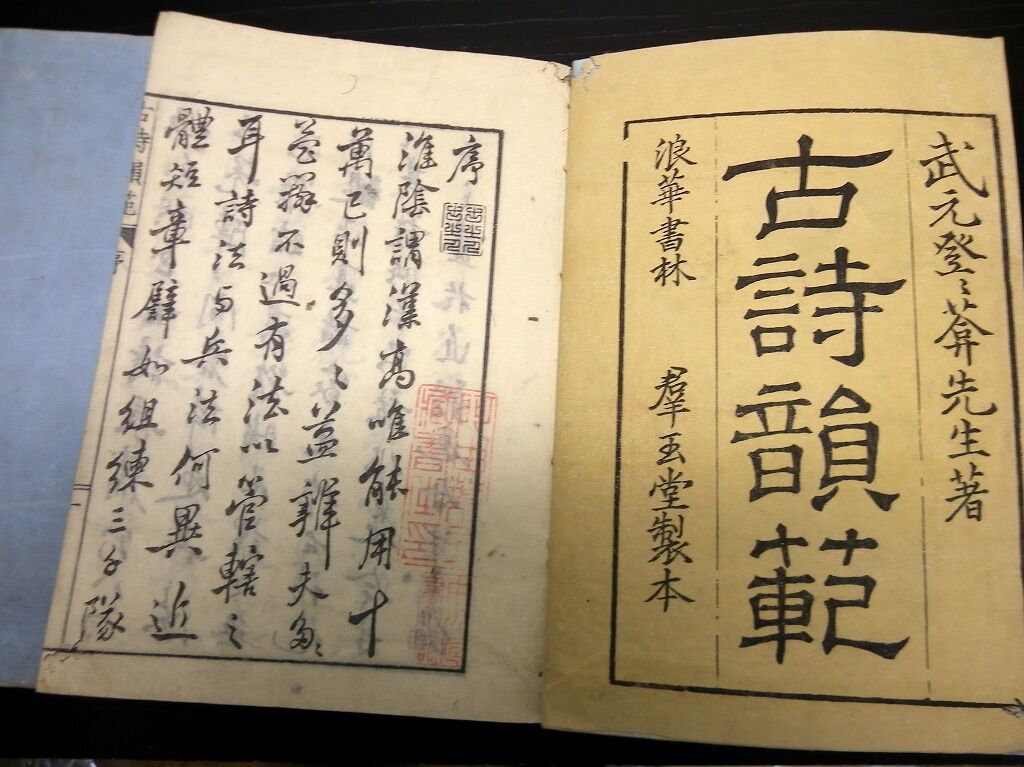 武元登〻葊先生著
古詩韻範
浪華書林　羣玉堂製本
序
淮陰謂漢高唯能用十
萬已則多〻益辨夫多〻
益辨不過有法以管轄之
耳詩法与兵法何異近
體短章譬如組練三千隊
古詩韻範　序